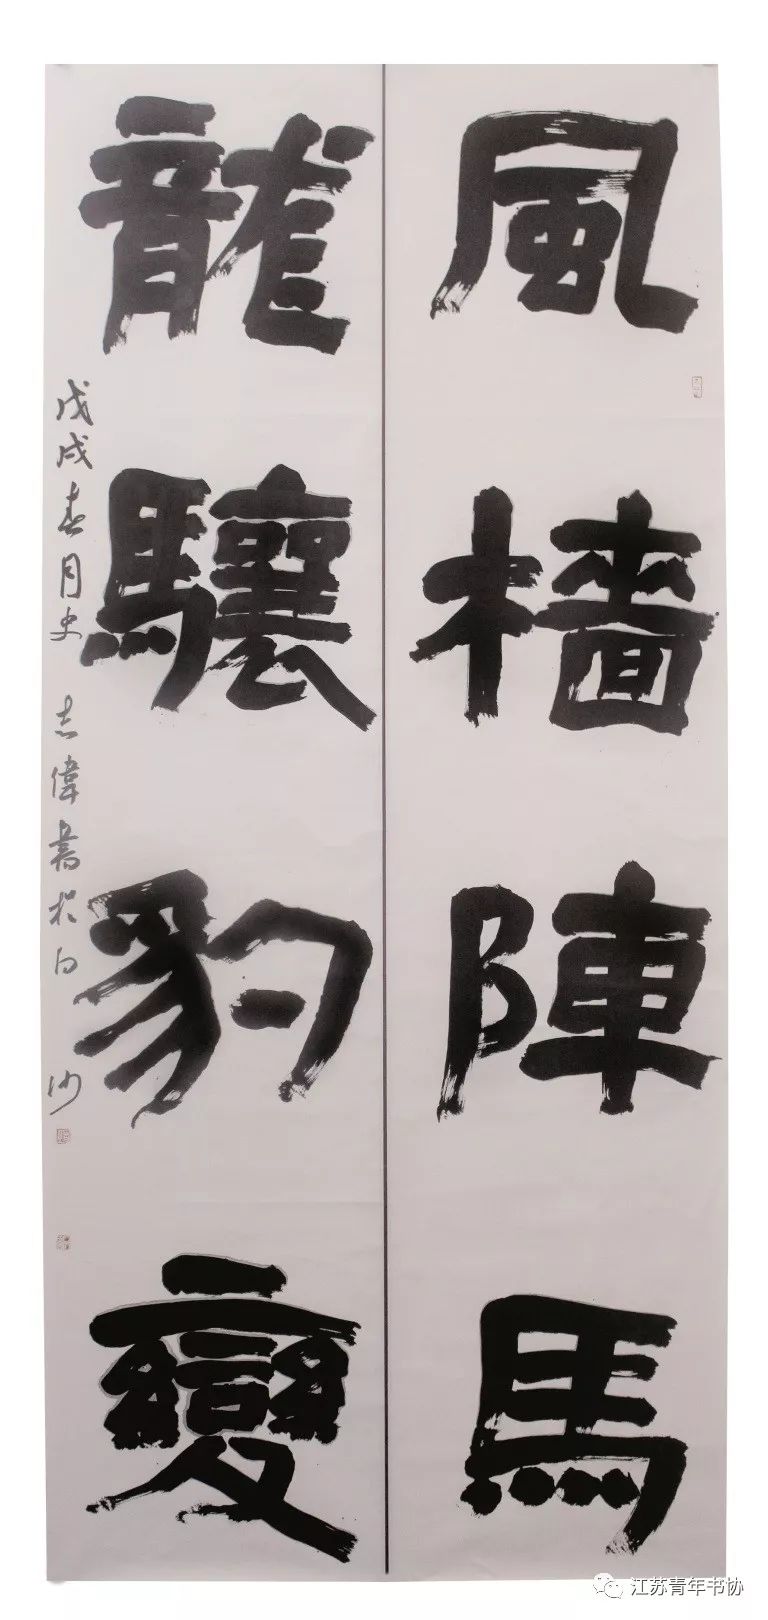 風檣陣馬
龍驤豹變
戊戌春月史志偉書於白沙
江苏青年书协